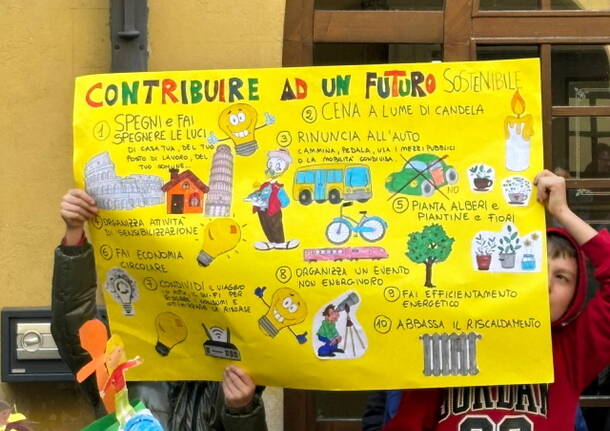 CONTRIBUIRE AD UN FUTURO SOSTENIBILE
1 SPEGNI e FAI
SPEGNERE LE LUCI
DI CASA TUA, DEL TUO
POSTO DI LAVORO, DEL
TUO COMUNE...
2 CENA A LUME DI CANDELA
3 RINUNCIA ALL'AUTO
CAMMINA, PEDALA, USA I MEZZI PUBBLICI
O LA MOBILITÀ CONDIVISA.
NO
4 ORGANIZZA ATTIVITÀ
DI SENSIBILIZZAZIONE
5 PIANTA ALBERI e
PIANTINE e FIORI
6 FAI ECONOMIA
CIRCOLARE
7 CONDIVIDI IL VIAGGIO
IL WI-FI PER
CONSUMI E
8 ORGANIZZA UN EVENTO
NON ENERGIVORO
9 FAI EFFICIENTAMENTO
ENERGETICO
10 ABBASSA IL RISCALDAMENTO
JORDAN